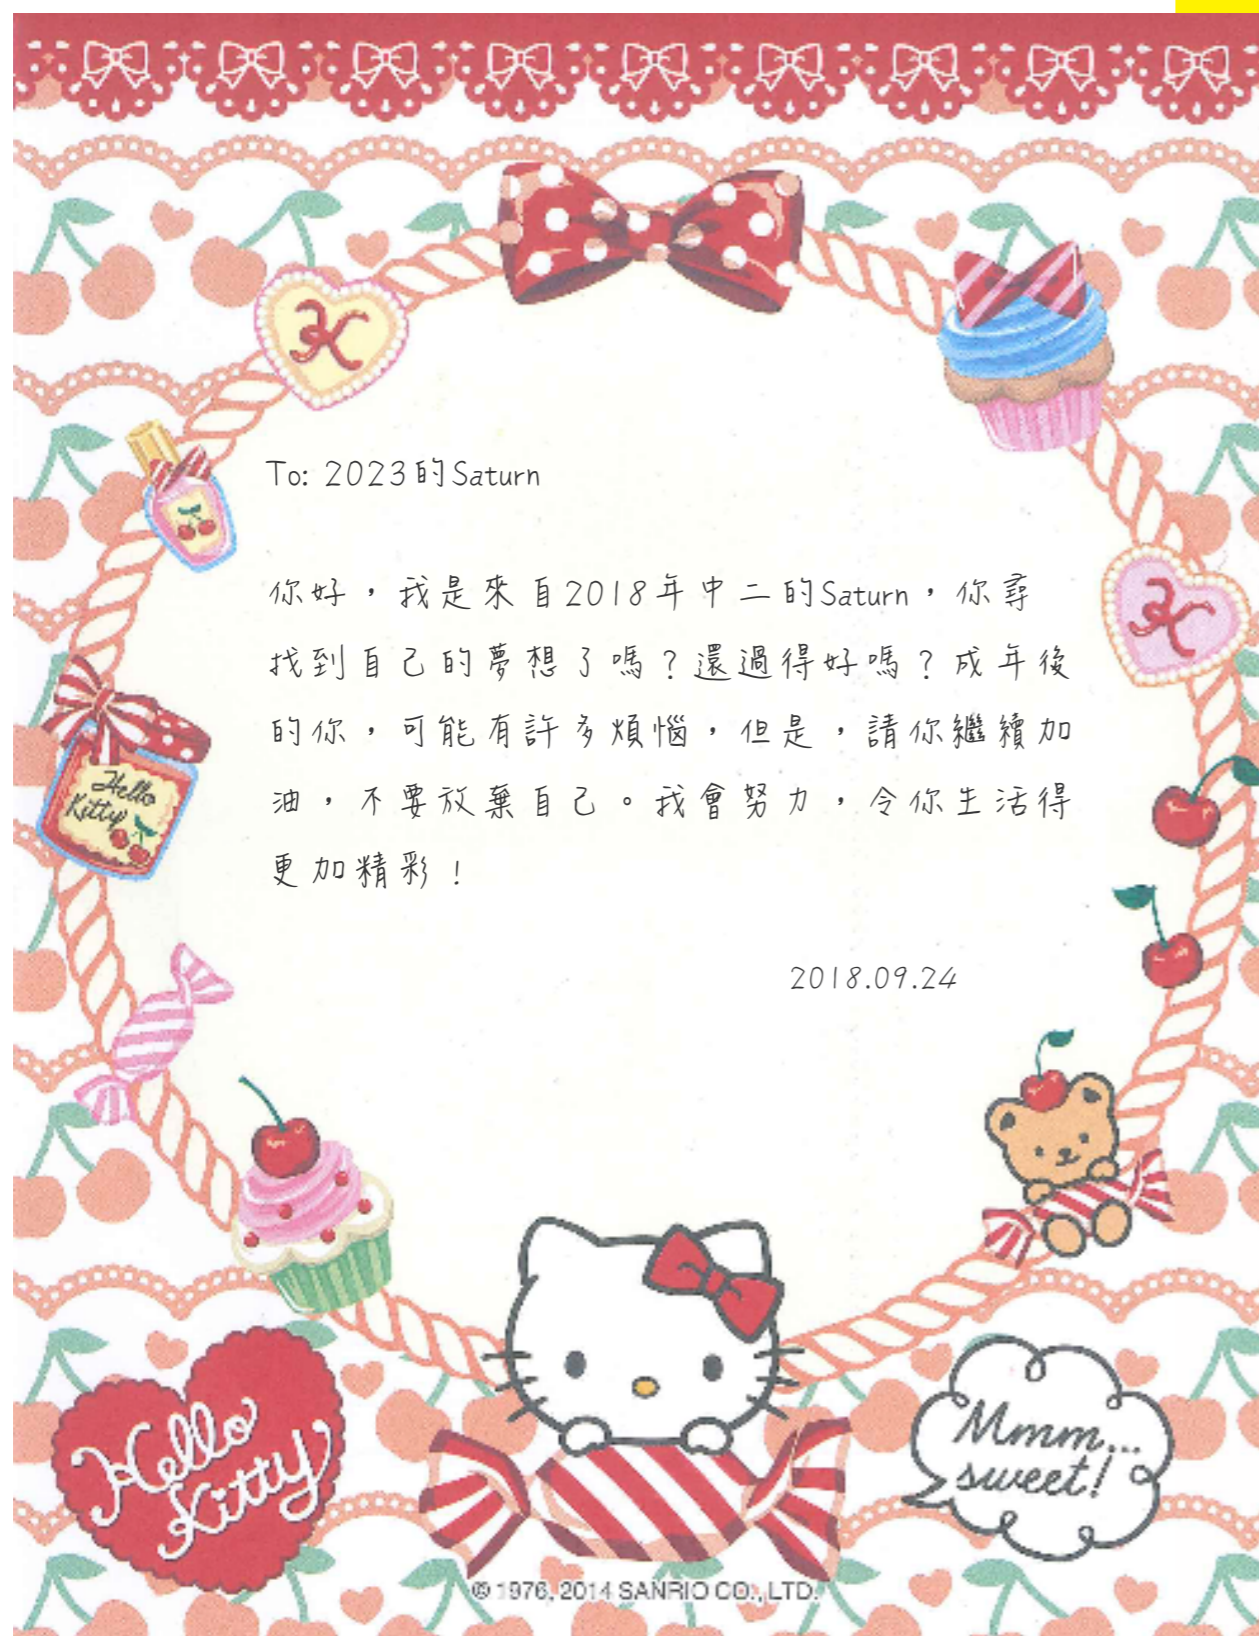 To: 2023的Saturn
你好，我是來自2018年中二的Saturn，你尋
找到自己的夢想了嗎？還過得好嗎？成年後
的你，可能有許多煩惱，但是，請你繼續加
油，不要放棄自己。我會努力，令你生活得
更加精彩！
2018.09.24
Hello
Kitty
Hello
Kitty
Mmm...
sweet!
© 1976, 2014 SANRIO CO., LTD.